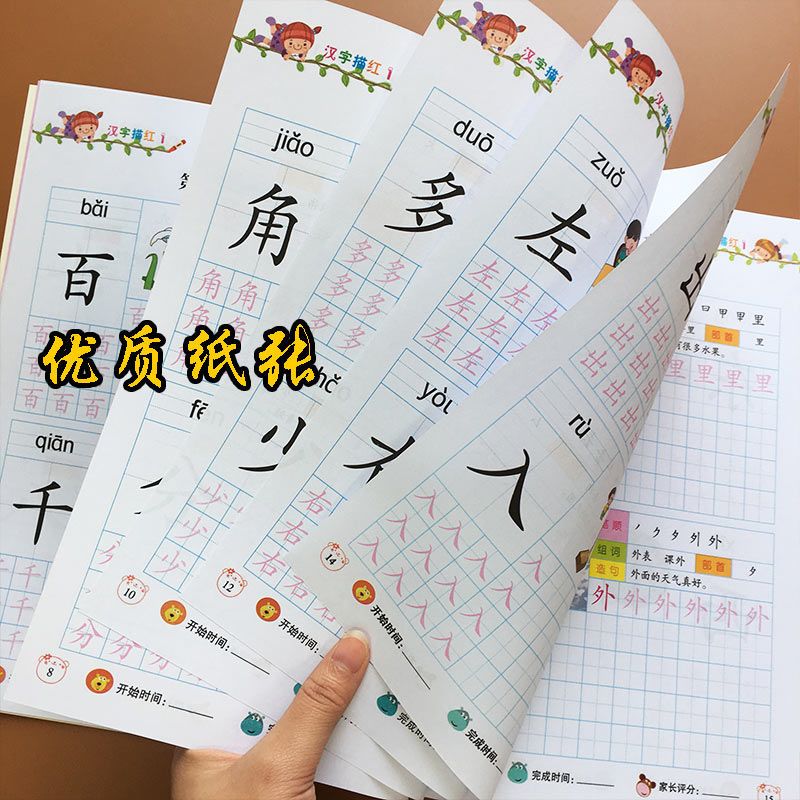 汉字描红1
bǎi
百
百
百百百
qiān
千
千
千
8
开始时间:
汉字描红1
jiǎo
角
角角
角
角
分
分分分
10
开始时间:
完成时间:
汉字描红1
duō
多
多多
多多
多多
少
少少
少
12
开始时间:
完成时间:
zuǒ
左
左左左
左左左
左左左
yòu
右
右右
右右
14
开始时间:
完成时间:
出
出出
出出
rù
入
入入入入
入入入入
入入入
完成时间:
优质纸张
曰甲甲里
里 部首 里
有很多水果。
里里里里
笔顺 ノクタ列外
组词 外表 课外 部首 夕
造句 外面的天气真好。
外外外外外外
完成时间:
家长评分:
15